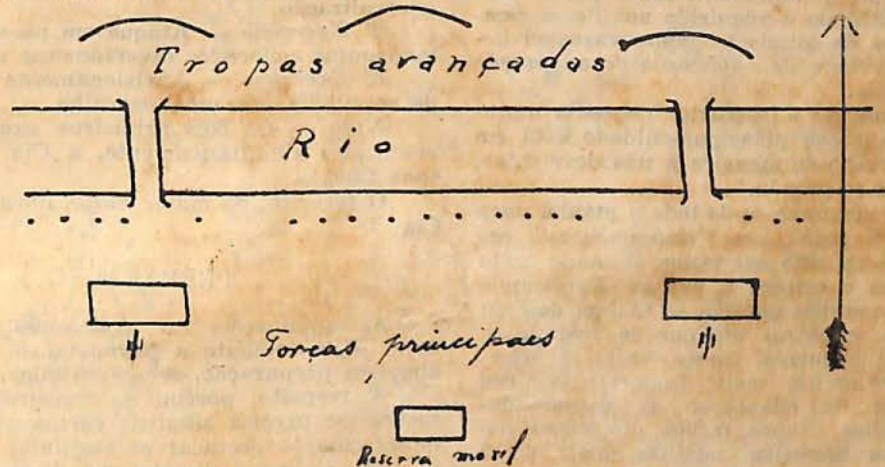 Tropas avançadas
Rio
Forças principaes
Reserva movel